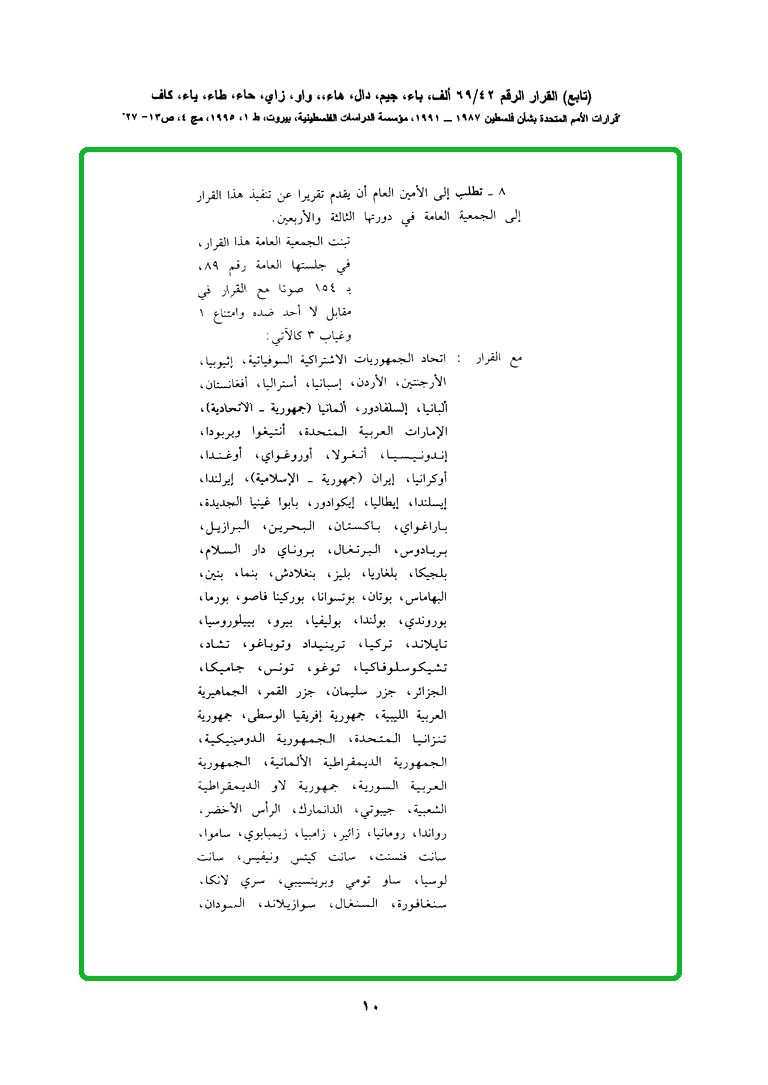 (تابع) القرار الرقم ٦٩/٤٢ ألف، باء، جيم، دال، هاء،، واو، زاي، حاء، طاء، ياء، كاف
"قرارات الأمم المتحدة بشأن فلسطين ١٩٨٧ – ١٩٩١، مؤسسة الدراسات الفلسطينية، بيروت، ط ١، ١٩٩٥، مج ٤، ص١٣- ٢٧"
٨ ـ تطلب إلى الأمين العام أن يقدم تقريرا عن تنفيذ هذا القرار
إلى الجمعية العامة في دورتها الثالثة والأربعين.
تبنت الجمعية العامة هذا القرار،
في جلستها العامة رقم ٨٩،
بـ ١٥٤ صوتا مع القرار في
مقابل لا أحد ضده وامتناع ١
وغياب ٣ كالآتي:
مع القرار : اتحاد الجمهوريات الاشتراكية السوفياتية، إثيوبيا،
الأرجنتين، الأردن، إسبانيا، أستراليا، أفغانستان،
ألبانيا، إلسلفادور، ألمانيا (جمهورية ـ الاتحادية)،
الإمارات العربية المتحدة، أنتيغوا وبربودا،
إندونيسيا، أنغولا، أوروغواي، أوغندا،
أوكرانيا، إيران (جمهورية ـ الإسلامية)، إيرلندا،
إيسلندا، إيطاليا، إيكوادور، بابوا غينيا الجديدة،
باراغواي، باكستان، البحرين، البرازيل،
بربادوس، البرتغال، بروناي دار السلام،
بلجيكا، بلغاريا، بليز، بنغلادش، بنما، بنين،
البهاماس، بوتان، بوتسوانا، بوركينا فاصو، بورما،
بوروندي، بولندا، بوليفيا، بيرو، بييلوروسيا،
تايلاند، تركيا، ترينيداد وتوباغو، تشاد،
تشيكوسلوفاكيا، توغو، تونس، جاميكا،
الجزائر، جزر سليمان، جزر القمر، الجماهيرية
العربية الليبية، جمهورية إفريقيا الوسطى، جمهورية
تنزانيا المتحدة، الجمهورية الدومينيكية،
الجمهورية الديمقراطية الألمانية، الجمهورية
العربية السورية، جمهورية لاو الديمقراطية
الشعبية، جيبوتي، الدانمارك، الرأس الأخضر،
رواندا، رومانيا، زائير، زامبيا، زيمبابوي، ساموا،
سانت فنسنت، سانت كيتس ونيفيس، سانت
لوسيا، ساو تومي وبرينسيبي، سري لانكا،
سنغافورة، السنغال، سوازيلاند، السودان،
١٠